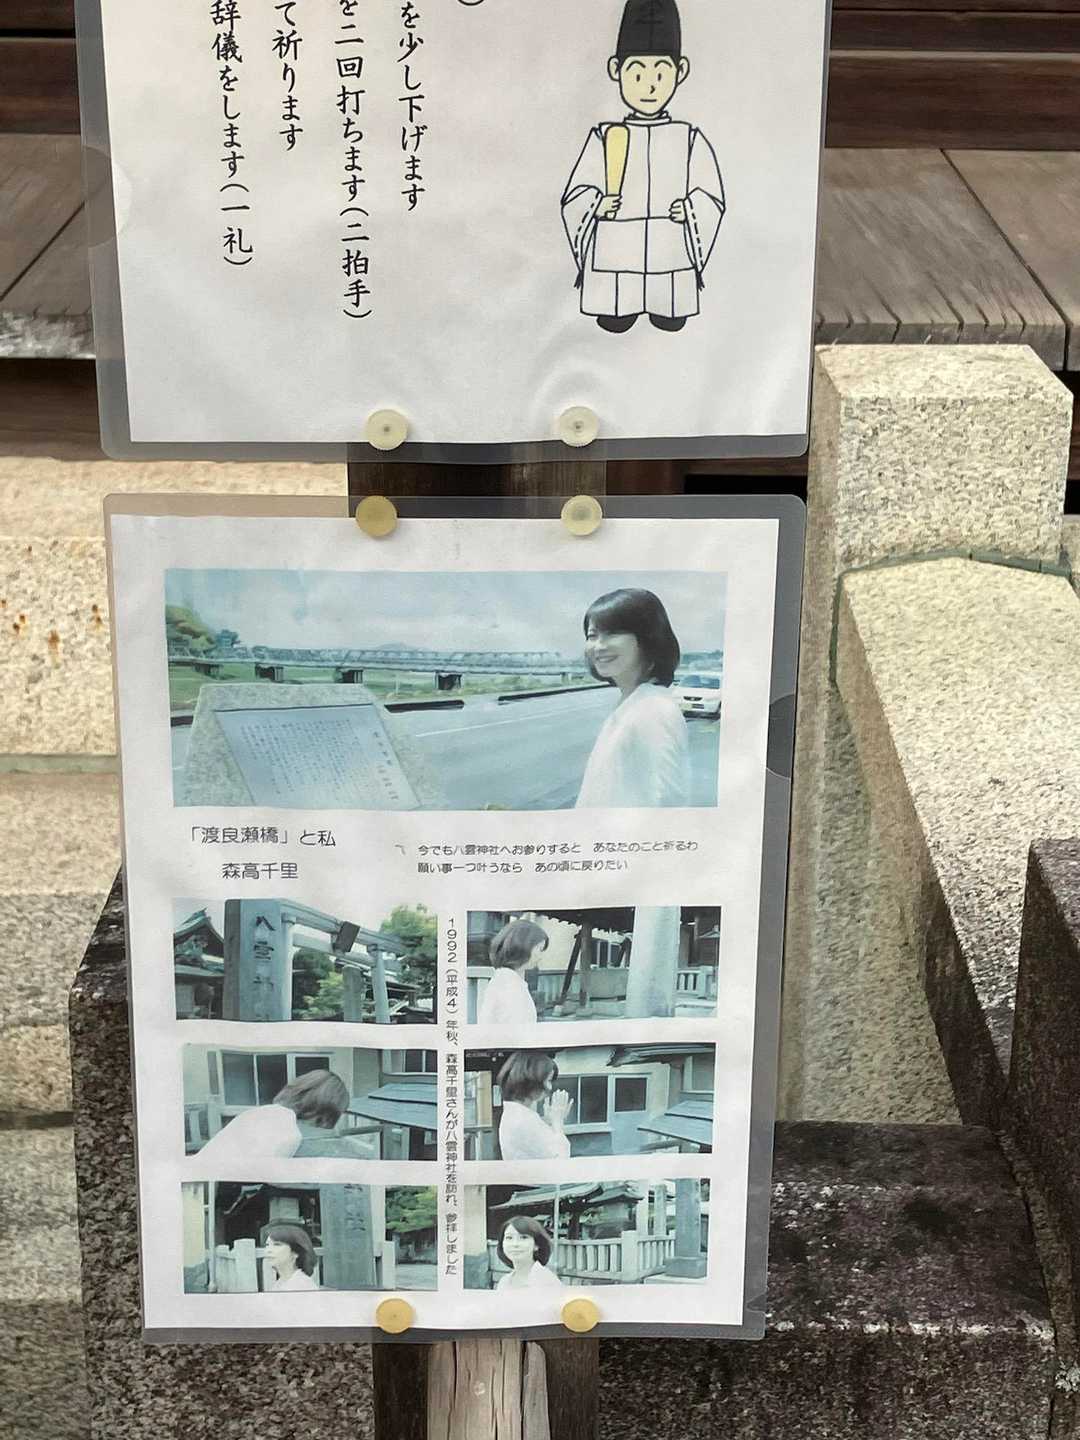 を少し下げます
を二回打ちます(二拍手)
て祈ります
辞儀をします(一礼)
「渡良瀬橋」と私
森高千里
今でも八雲神社へお参りすると あなたのこと祈るわ
願い事一つ叶うなら あの頃に戻りたい
八雲神
1992(平成4)年秋、森高千里さんが八雲神社を訪れ、参拝しました